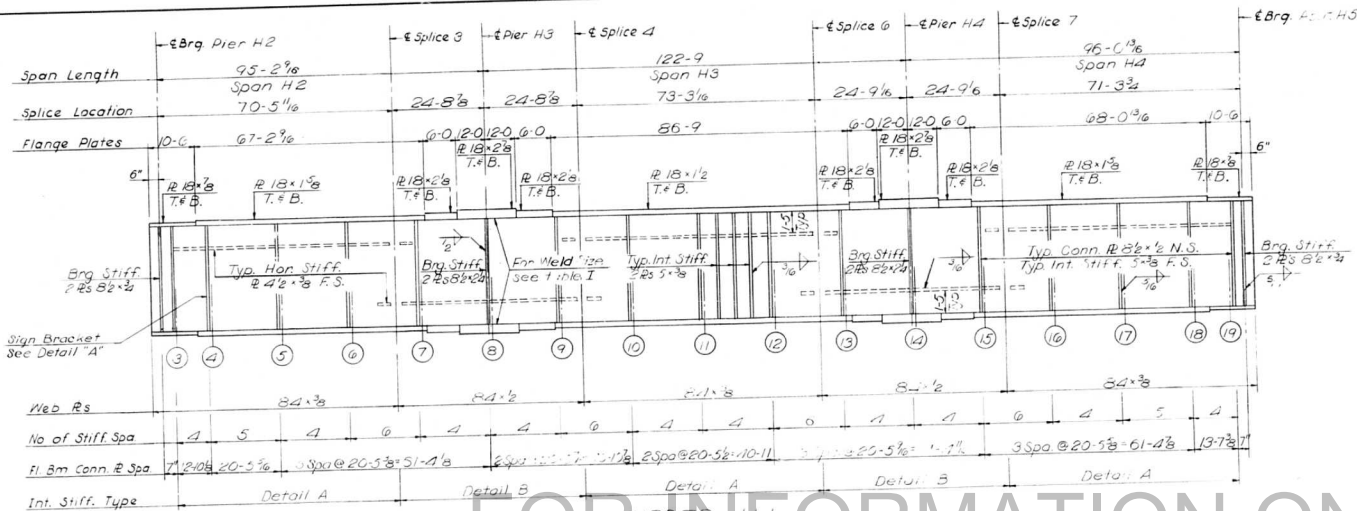 ℄ Brg. Pier H2
℄ Splice 3
℄ Pier H3
℄ Splice 4
℄ Splice 6
℄ Pier H4
℄ Splice 7
℄ Brg. H5
Span Length 95-2 9/16 122-9 96-0 13/16
Span H2 Span H3 Span H4
Splice Location 70-5 11/16 24-8 7/8 24-8 7/8 73-3 1/16 24-9 1/16 24-9 1/16 71-3 3/4
Flange Plates 10-6 67-2 9/16 6-0 12-0 12-0 6-0 86-9 6-0 12-0 12-0 6-0 68-0 13/16 10-6
6" 6"
℞ 18×2 7/8
T. & B.
℞ 18×2 7/8
T. & B.
℞ 18×7/8
T. & B.
℞ 18×1 5/8
T. & B.
℞ 18×2 1/8
T. & B.
℞ 18×2 1/8
T. & B.
℞ 18×1 1/2
T. & B.
℞ 18×2 1/8
T. & B.
℞ 18×2 1/8
T. & B.
℞ 18×1 5/8
T. & B.
℞ 18×7/8
T. & B.
Brg Stiff.
2 ℞s 8 1/2 × 3/4
Typ. Hor. Stiff.
℞ 4 1/2 × 3/8 F.S.
1/2
Brg. Stiff.
2 ℞s 8 1/2 × 2 1/4
For Weld Size
see table I
Typ. Int. Stiff.
2 ℞s 5 × 3/8
3/16
Brg. Stiff.
2 ℞s 8 1/2 × 2 1/4
3/16
Typ. Conn. ℞ 8 1/2 × 1/2 N.S.
Typ. Int. Stiff. 5 × 3/8 F.S.
3/16
Brg. Stiff.
2 ℞s 8 1/2 × 3/4
1-5
1-5
Sign Bracket
See Detail "A"
3 4 5 6 7 8 9 10 11 12 13 14 15 16 17 18 19
Web ℞s 84 × 3/8 84 × 1/2 84 × 3/8 84 × 1/2 84 × 3/8
No of Stiff. Spa. 4 5 4 6 4 4 6 4 4 4 4 6 4 5 4
Fl. Bm Conn. ℞ Spa. 7" 20-5 3Spa @ 20-5 = 61-4 2Spa 2Spa @ 20-5 1/2 = 40-11 3Spa @ 20-5 5/8 = 61-4 7/8 13-7 7/8 7"
Int. Stiff. Type Detail A Detail B Detail A Detail B Detail A
FOR INFORMATION ON